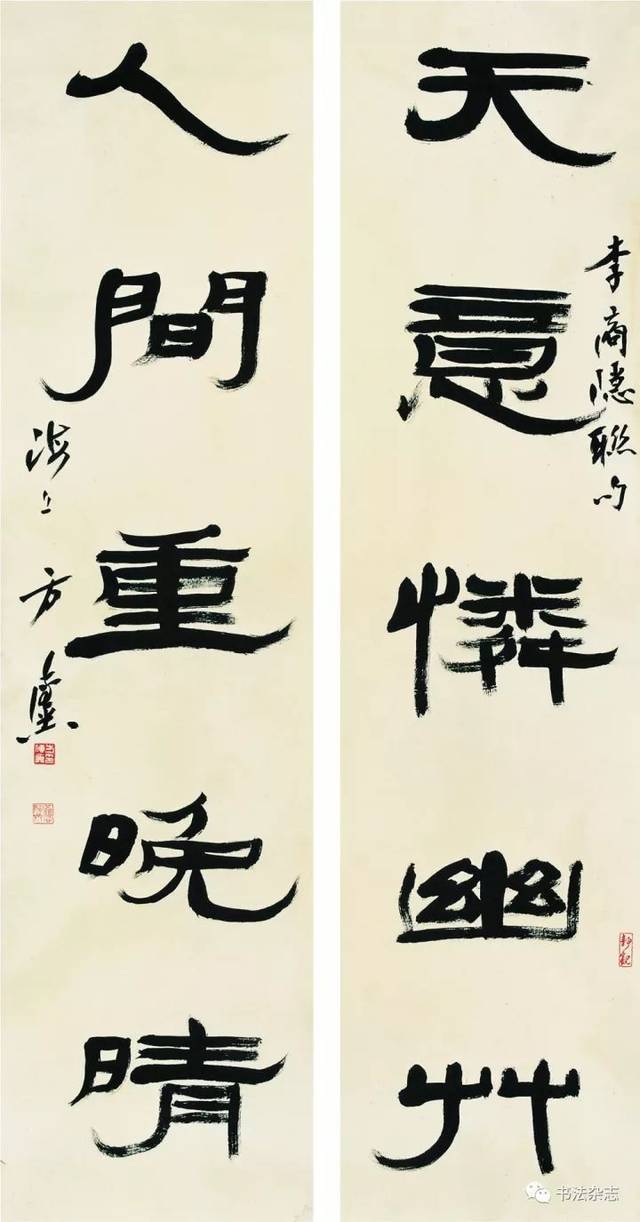 天意憐幽艸
李商隱聯句
人間重晚晴
海上方
静觀
书法杂志